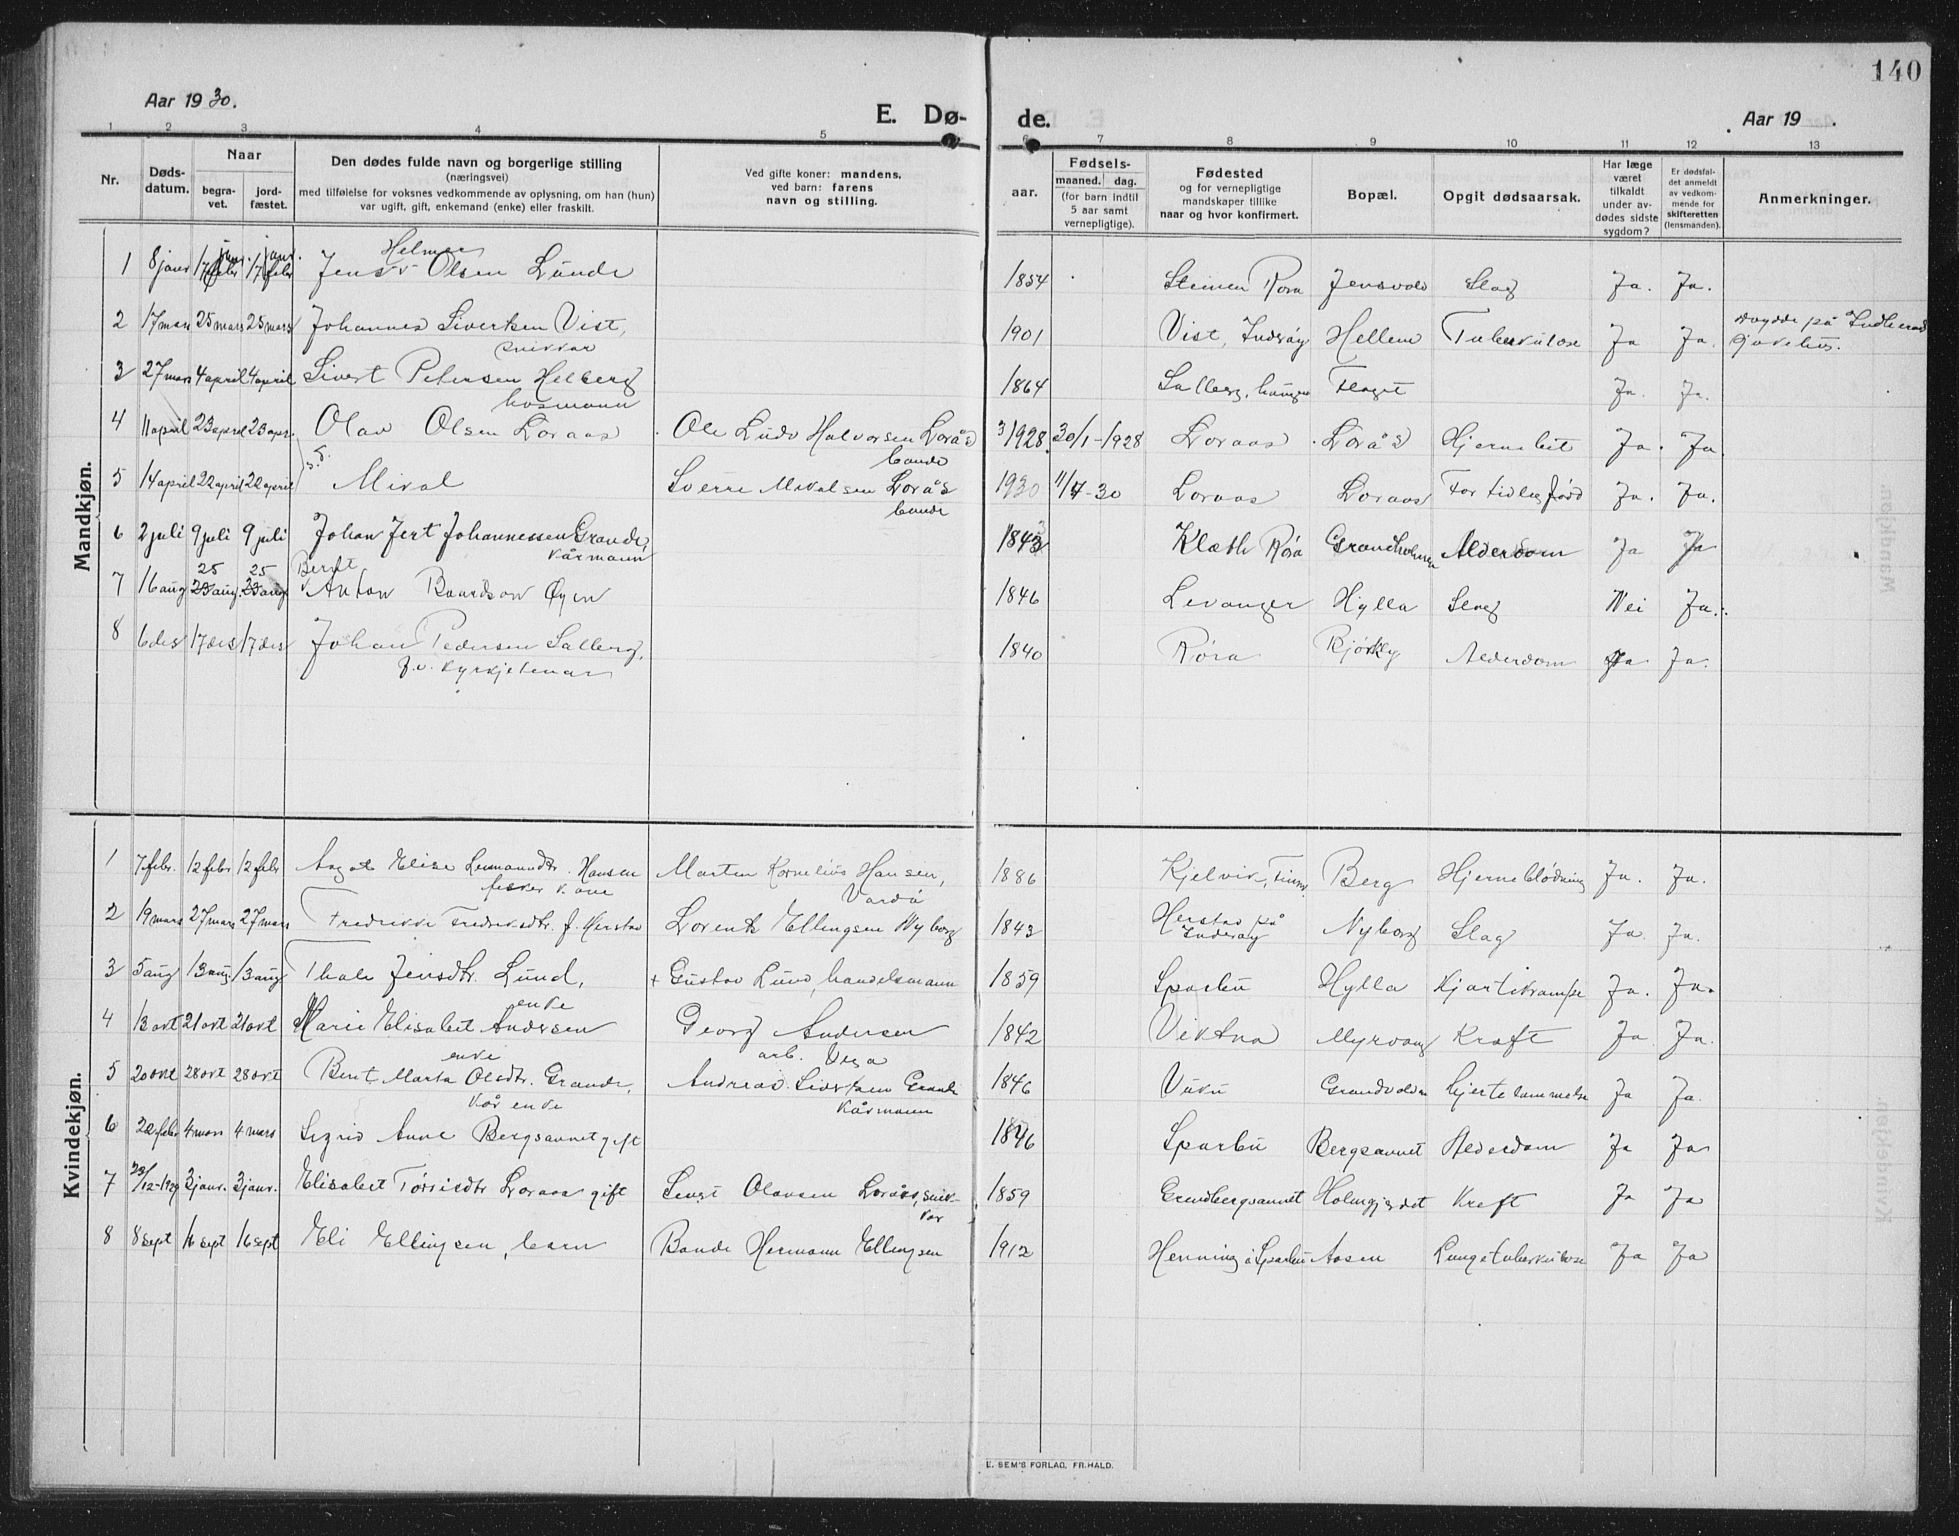 140
Aar 1930.
E. Dø-
de.
Aar 19 .
1 2 3 4 5 6 7 8 9 10 11 12 13
Nr.
Døds-
datum.
Naar
begra-
vet.
jord-
fæstet.
Den dødes fulde navn og borgerlige stilling
(næringsvei)
med tilføielse for voksnes vedkommende av oplysning, om han (hun)
var ugift, gift, enkemand (enke) eller fraskilt.
Ved gifte koner: mandens,
ved barn: farens
navn og stilling.
aar.
Fødsels-
maaned. dag.
(for barn indtil
5 aar samt
vernepligtige).
Fødested
og for vernepligtige
mandskaper tillike
naar og hvor konfirmert.
Bopæl.
Opgit dødsaarsak.
Har læge
været
tilkaldt
under av-
dødes sidste
sygdom?
Er dødsfal-
det anmeldt
av vedkom-
mende for
skifteretten
(lensmanden).
Anmerkninger.
Mandkjøn.
Helmer
1 8 janr 17 janr. 17 janr. Jens Olsen Lunde 1854 Steinen Røra Jensvold Slag Ja. Ja.
2 17 mars 25 mars 25 mars Johannes Sivertsen Vist, 1901 Vist, Inderøy Hellem Tuberkulose Ja Ja. døydde på Indherad
snikkar sjukehus.
3 27 mars 4 april 4 april Sivert Petersen Helberg 1864 Salberg, Flaget Ja. Ja.
husmann
4 11 april 23 april 23 apr. Olav Olsen Loraas Ole Ludv Halvorsen Lorås 1928 30/1-1928 Loraas Lorås Ja. Ja.
bonde
5 14 april 22 april 22 april Mikal Sverre Mikalsen Lorås 1930 11/4-30 Loraas Loraas For tidleg fødd Ja. Ja.
bonde
6 2 juli 9 juli 9 juli Johan Jert Johannessen Grande, 1843 Klæth Røra Grandholmen Alderdom Ja Ja
kårmann
Bernt
7 16 aug 25 aug. 25 aug Anton Baardson Øyen 1846 Levanger Hylla Slag Nei Ja.
8 6 des 17 des 17 des Johan Pedersen Salberg, 1840 Røra Bjørkly Alderdom Ja Ja.
f.v. kyrkjetenar
Kvindekjøn.
1 7 febr. 12 febr 12 febr Aagot Elise Hansen Marten Kornelius Hansen, 1886 Kjelvik, Finnm Berg Hjerneblødning Ja. Ja.
fisker kone Vardø
2 19 mars 27 mars 27 mars Fredrikke Fredriksdtr. f. Herstad Lorents Ellingsen Nyborg 1843 Herstad på Nyborg Slag Ja. Ja.
Inderøy
3 5 aug 13 aug. 13 aug Thale Jensdtr. Lund, + Gustav Lund, handelsmann 1859 Sparbu Hylla Hjartekrampe Ja. Ja.
enke
4 13 okt 21 okt 21 okt Marie Elisabet Andersen Georg Andersen 1842 Vikna Myrvang Kræft Ja. Ja.
enke arb.
5 20 okt 28 okt 28 okt Berit Marta Olsdtr. Grande, Andreas Sivertsen Grande 1846 Vuku Grandvolden Hjertelammelse Ja Ja.
kår enke kårmann
6 22 febr 4 mars 4 mars Sigrid Anne Bergsaunet gift 1846 Sparbu Bergsaunet Alderdom Ja Ja
7 23/12-1929 3 janr. 3 janr. Elisabet Torrisdtr Loraas gift Sivert Olausen Lorås, snik- 1859 Grundbergsaunet Holmgjerdet Kreft Ja Ja
kar
8 8 sept 16 sept 16 sept Eli Ellingsen, barn Bonde Hermann Ellingsen 1912 Henning i Sparbu Aasen Lungetuberkulose Ja Ja
E. SEM'S FORLAG, FR.HALD.